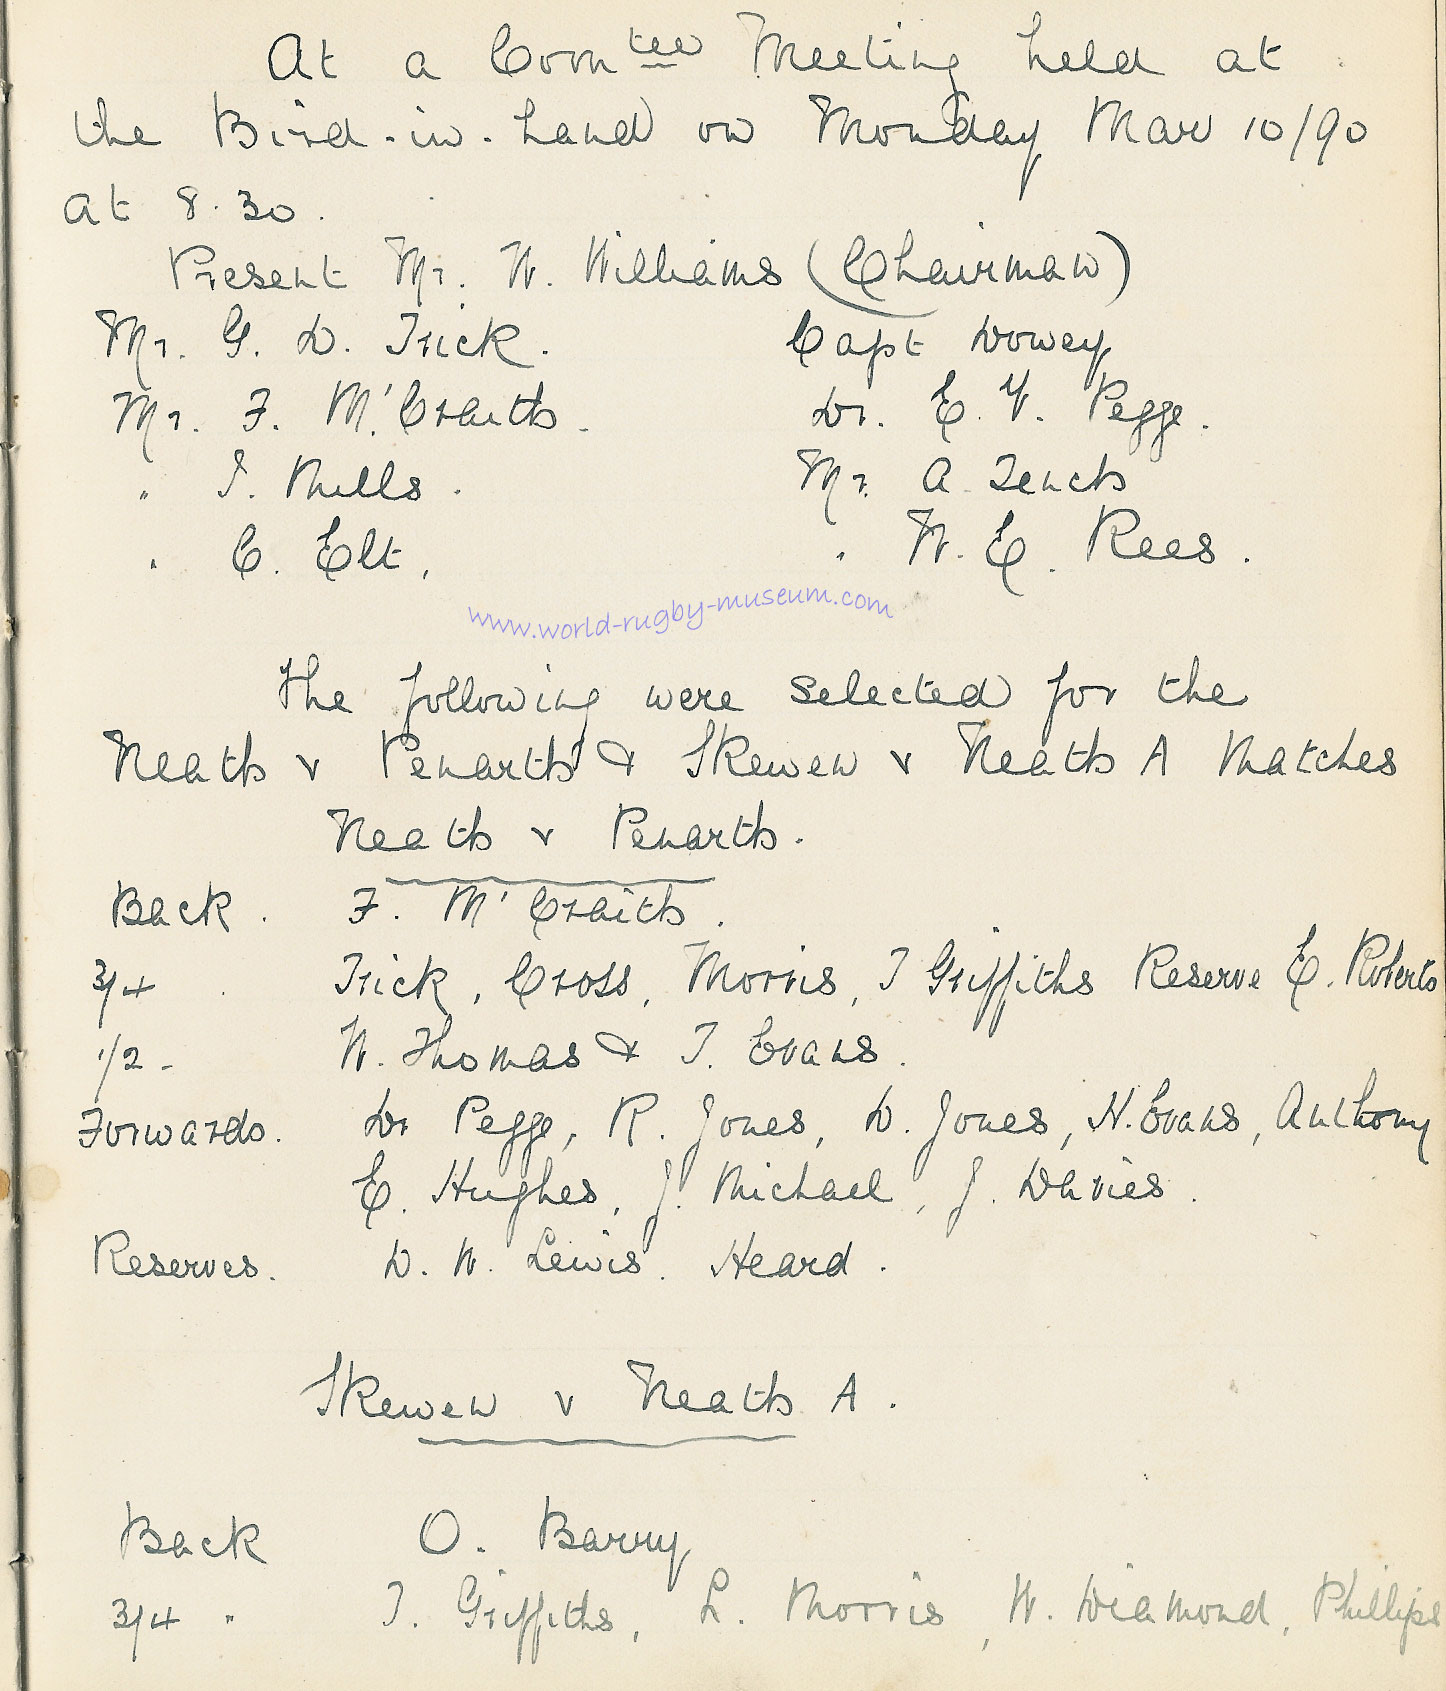 At a Com tee Meeting held at
the Bird-in-hand on Monday Mar 10/90
at 8.30.
Present Mr. W. Williams (Chairman)
Mr. G. D. Trick. Capt Dowey
Mr. F. M'Craith. Dr. E. V. Pegge.
" T. Mills. Mr. A. Tench
" C. Elt. " W. E. Rees.
www.world-rugby-museum.com
The following were selected for the
Neath v Penarth & Skewen v Neath A Matches
Neath v Penarth.
Back. F. M'Craith.
3/4 Trick, Cross, Morris, T Griffiths Reserve E. Roberts
1/2 - W. Thomas & T. Evans.
Forwards. Dr Pegge, R. Jones, D. Jones, N. Evans, Anthony
E. Hughes, J. Michael, J. Davies.
Reserves. D. W. Lewis. Heard.
Skewen v Neath A.
Back O. Barry
3/4 " T. Griffiths, L. Morris, W. Diamond, Phillips